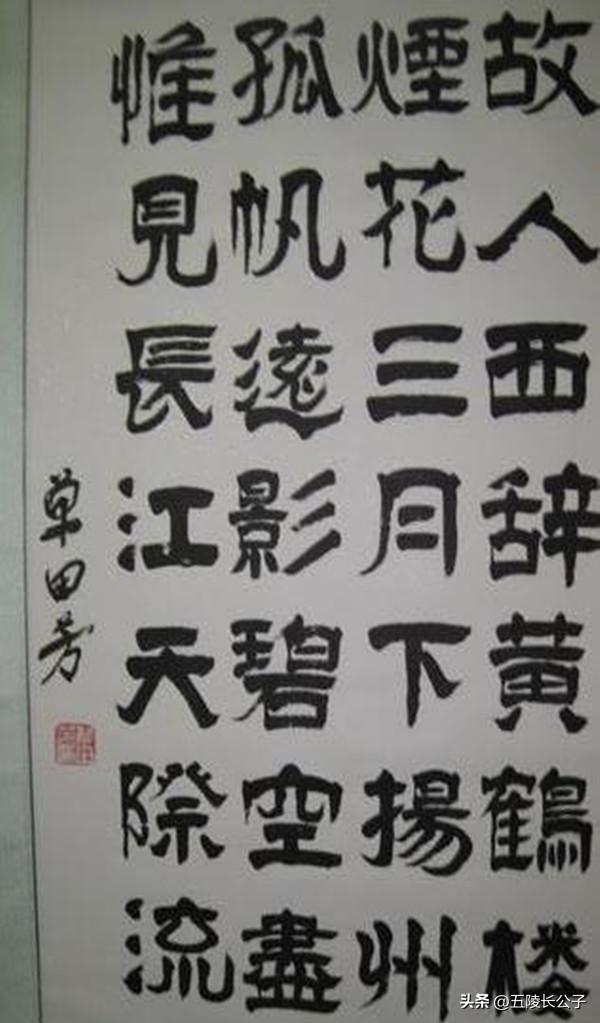 故人西辞黄鹤楼
煙花三月下揚州
孤帆遠影碧空盡
惟見長江天際流
单田芳
头条 @五陵长公子